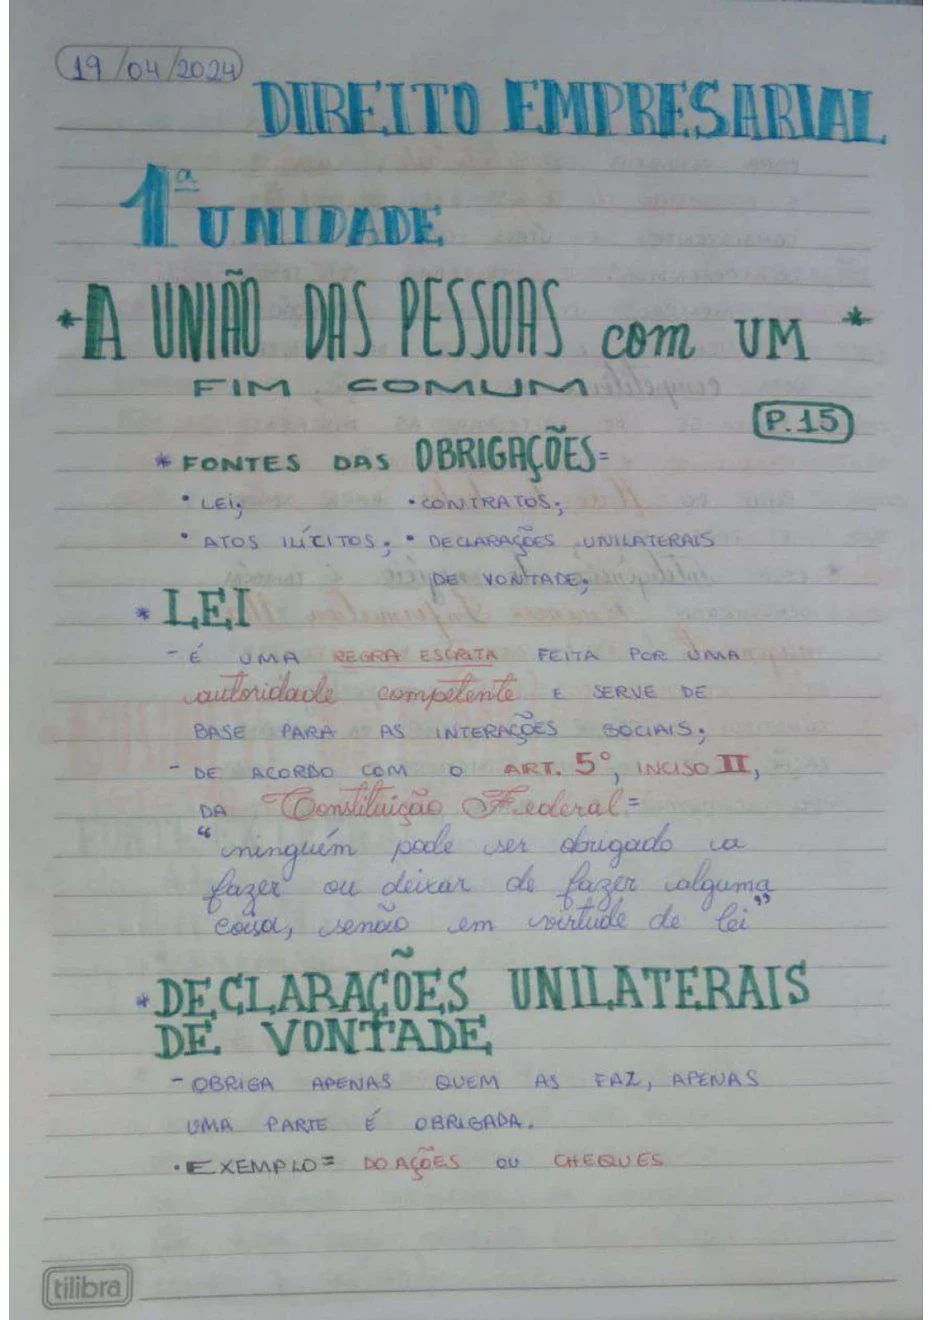 19/04/2024
DIREITO EMPRESARIAL
1ª UNIDADE
*A UNIÃO DAS PESSOAS com UM *
FIM COMUM
P.15
* FONTES DAS OBRIGAÇÕES=
• LEI; • CONTRATOS;
• ATOS ILÍCITOS; • DECLARAÇÕES UNILATERAIS
DE VONTADE;
* LEI
- É UMA REGRA ESCRITA FEITA POR UMA
autoridade competente E SERVE DE
BASE PARA AS INTERAÇÕES SOCIAIS;
- DE ACORDO COM O ART. 5°, INCISO II,
DA Constituição Federal=
“ninguém pode ser obrigado a
fazer ou deixar de fazer alguma
coisa, senão em virtude de lei”
*DECLARAÇÕES UNILATERAIS
DE VONTADE
- OBRIGA APENAS QUEM AS FAZ, APENAS
UMA PARTE É OBRIGADA.
• EXEMPLO= DOAÇÕES OU CHEQUES
tilibra